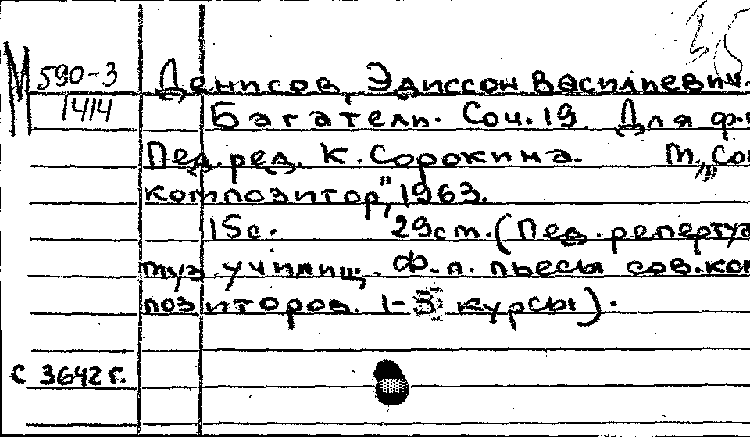 35
М 590-3
1414
Денисов, Эдиссон Васильевич.
Багатели. Соч. 19. Для ф-
Пед. ред. К. Сорокина. М., "Сов
композитор", 1963.
15с. 29см. (Пед. репертуа
муз. училищ. Ф.-п. пьесы сов. ком
позиторов. 1-3 курсы).
С 3642 г.